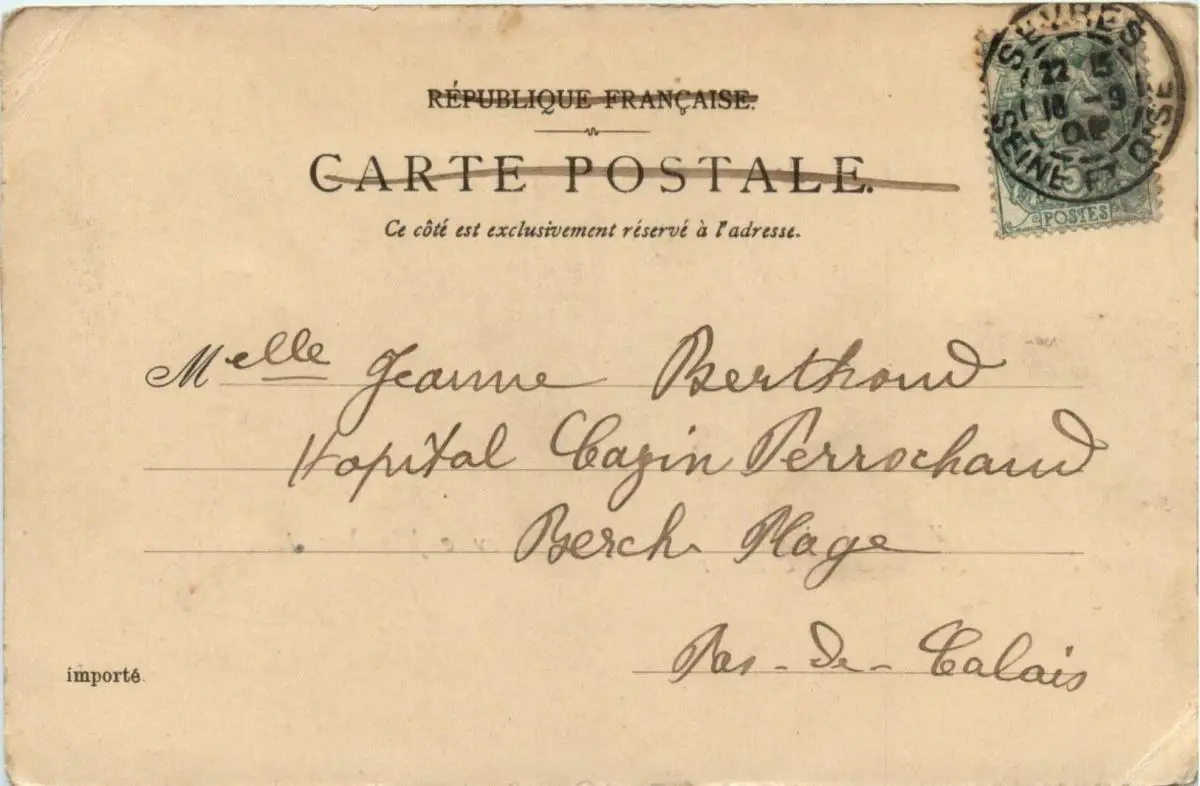 RÉPUBLIQUE FRANÇAISE.
CARTE POSTALE.
Ce côté est exclusivement réservé à l'adresse.
SÈVRES
22 15
18 -9
SEINE ET OISE
5
POSTES
Melle Jeanne Berthoud
Hopital Cazin Perrochaud
Berck Plage
Pas-de-Calais
importé